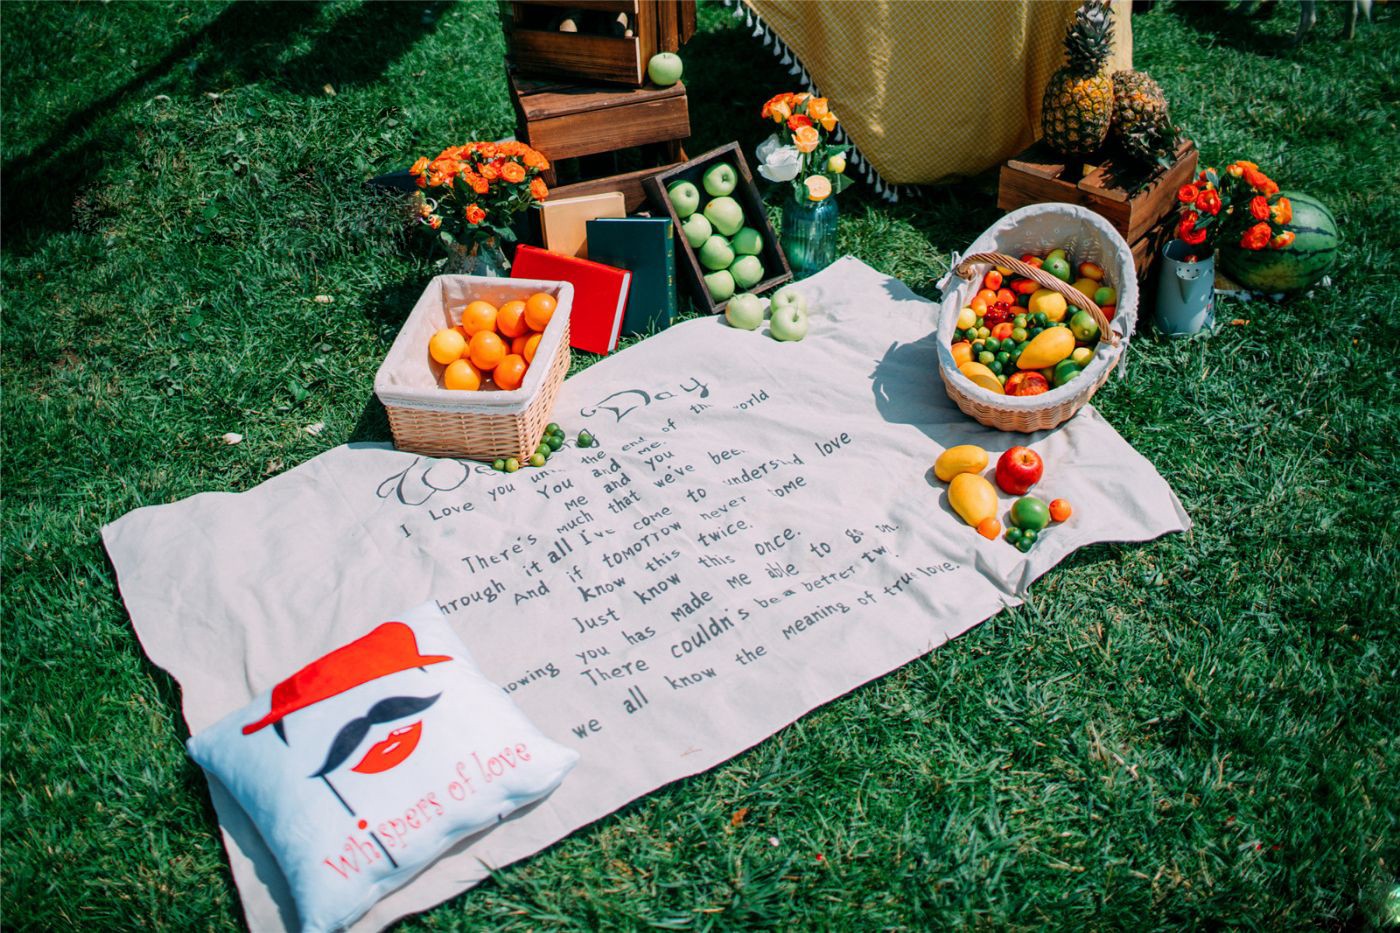 Wedding Day
I Love you until the end of the world
You and me.
There's me and you
through it all much that we've been
And I've come to understand love
if tomorrow never come
Know this twice.
Just know this once.
Knowing you has made me able to go on.
There couldn't be a better two.
we all know the meaning of true love.
Whispers of love